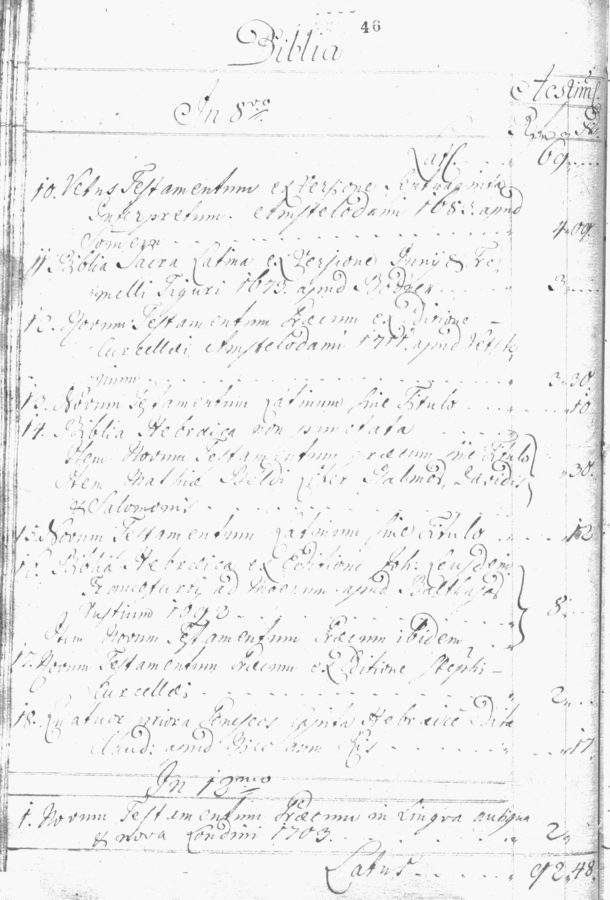 46
Biblia
Aestim.
In 8vo
Lat. 69
10. Vetus Testamentum ex Versione Septuaginta
Interpretum. Amstelodami 1683. apud
Someren 4 09.
11. Biblia Sacra Latina ex Versione Junij & Tre-
melli Tiguri 1673. apud Bodmer 3
12. Novum Testamentum Graecum ex Editione
Curcellaei Amstelodami apud Wetste-
nium 3 30.
13. Novum Testamentum Latinum sine Titulo 10
14. Biblia Hebraica non punctata
Item Novum Testamentum graecum sine Titulo 30.
Item Mathiae Liber Psalmor. Davidis
& Salomonis
15. Novum Testamentum Latinum sine Titulo 12
16. Biblia Hebraica ex Editione Joh: Leusdeni
Francofurti ad Moenum apud Balthasar
Wustium 8.
Item Novum Testamentum Graecum ibidem
17. Novum Testamentum Graecum ex Editione Stephi-
Curcellaei 2
18. Quatuor priora Geneseos Capita Hebraice Edita
apud 17.
In 12mo
1. Novum Testamentum Graecum in Lingva antiqua
& nova Londini 1703. 2
Latus 92 48.